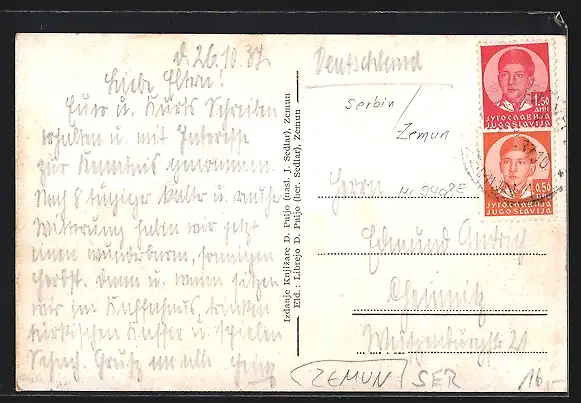 d. 26.10.37
Liebe Eltern!
Euer u. Kurts Schreiben
erhalten u. mit Interesse
zur Kenntnis genommen.
Nach 8 tägiger kalter u. rauher
Witterung haben wir jetzt
einen wunderbaren, sonnigen
Herbst. Dann u. wann sitzen
wir im Kaffeehaus, trinken
türkischen Kaffee u. spielen
Schach. Grüße an alle
Izdanje Knjižare D. Puljo (nasl. J. Sedlar), Zemun
Eld.: Librejo D. Puljo (her. Sedlar), Zemun
Deutschland
Serbin/
Zemun
Herrn
Edmund
Chemnitz
21
1.50
ДИН
ЈУГОСЛАВИЈА
JUGOSLAVIJA
0.50
ЈУГОСЛАВИЈА
JUGOSLAVIJA
ZEMUN SER
16,-